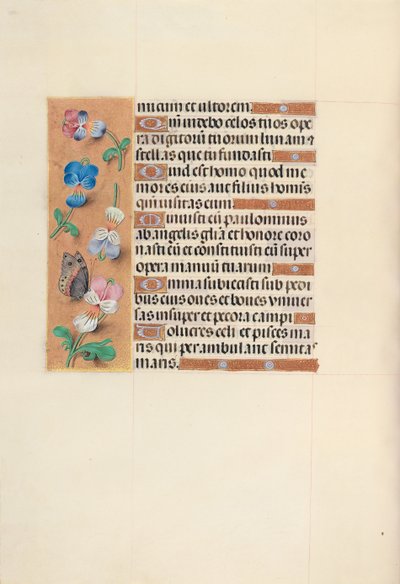 micum et ultorem.
Qm̄ uidebo celos tuos ope
ra digitorū tuorum lunam ⁊
stellas que tu fundasti
Quid est homo quod me
mor es eius aut filius homīs
qui uisitas eum.
Minuisti eū paulominus
ab angelis gl̄ia et honore coro
nasti eū et constituisti eū super
opera manuū tuarum
Omnia subiecisti sub pedi
bus eius oues et boues vniuer
sas insuper et pecora campi
Uolucres celi et pisces ma
ris qui perambulant semitas
maris.